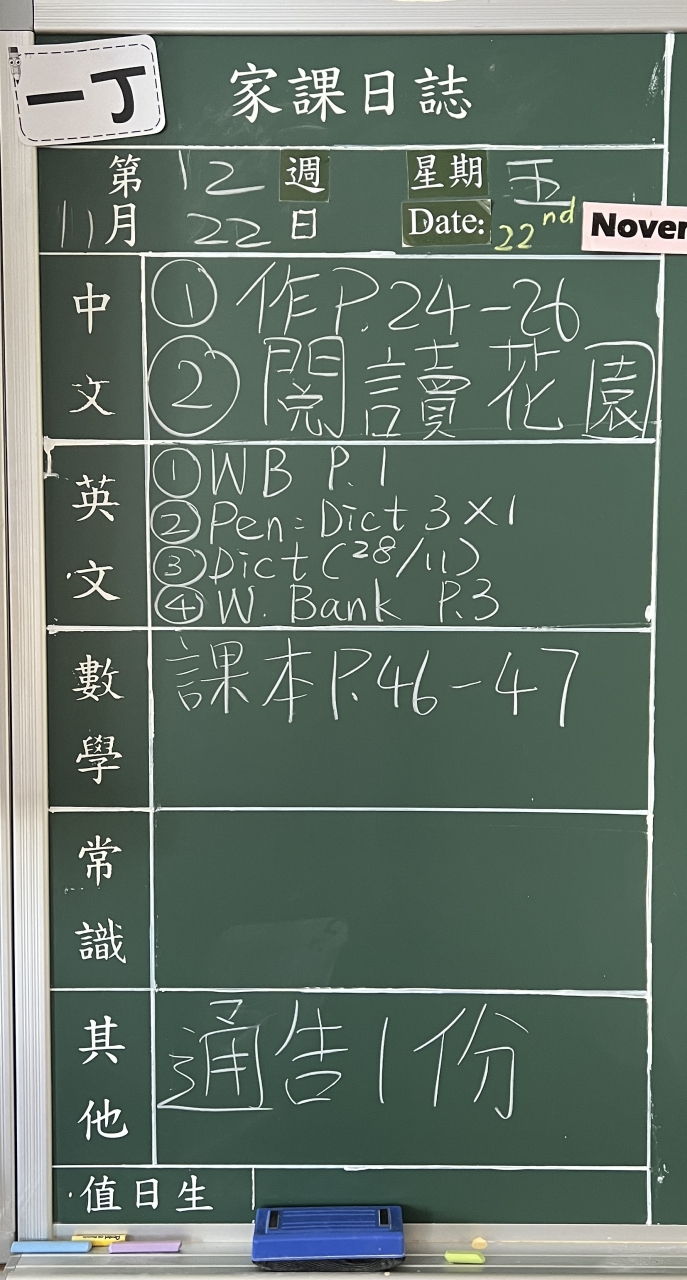 一丁
家課日誌
第 12 週 星期 五
11月 22 日 Date: 22nd Nover
中文
① 作P.24-26
② 閱讀花園
英文
① WB P.1
② Pen: Dict 3×1
③ Dict (28/11)
④ W. Bank P.3
數學
課本P.46-47
常識
其他
通告1份
值日生